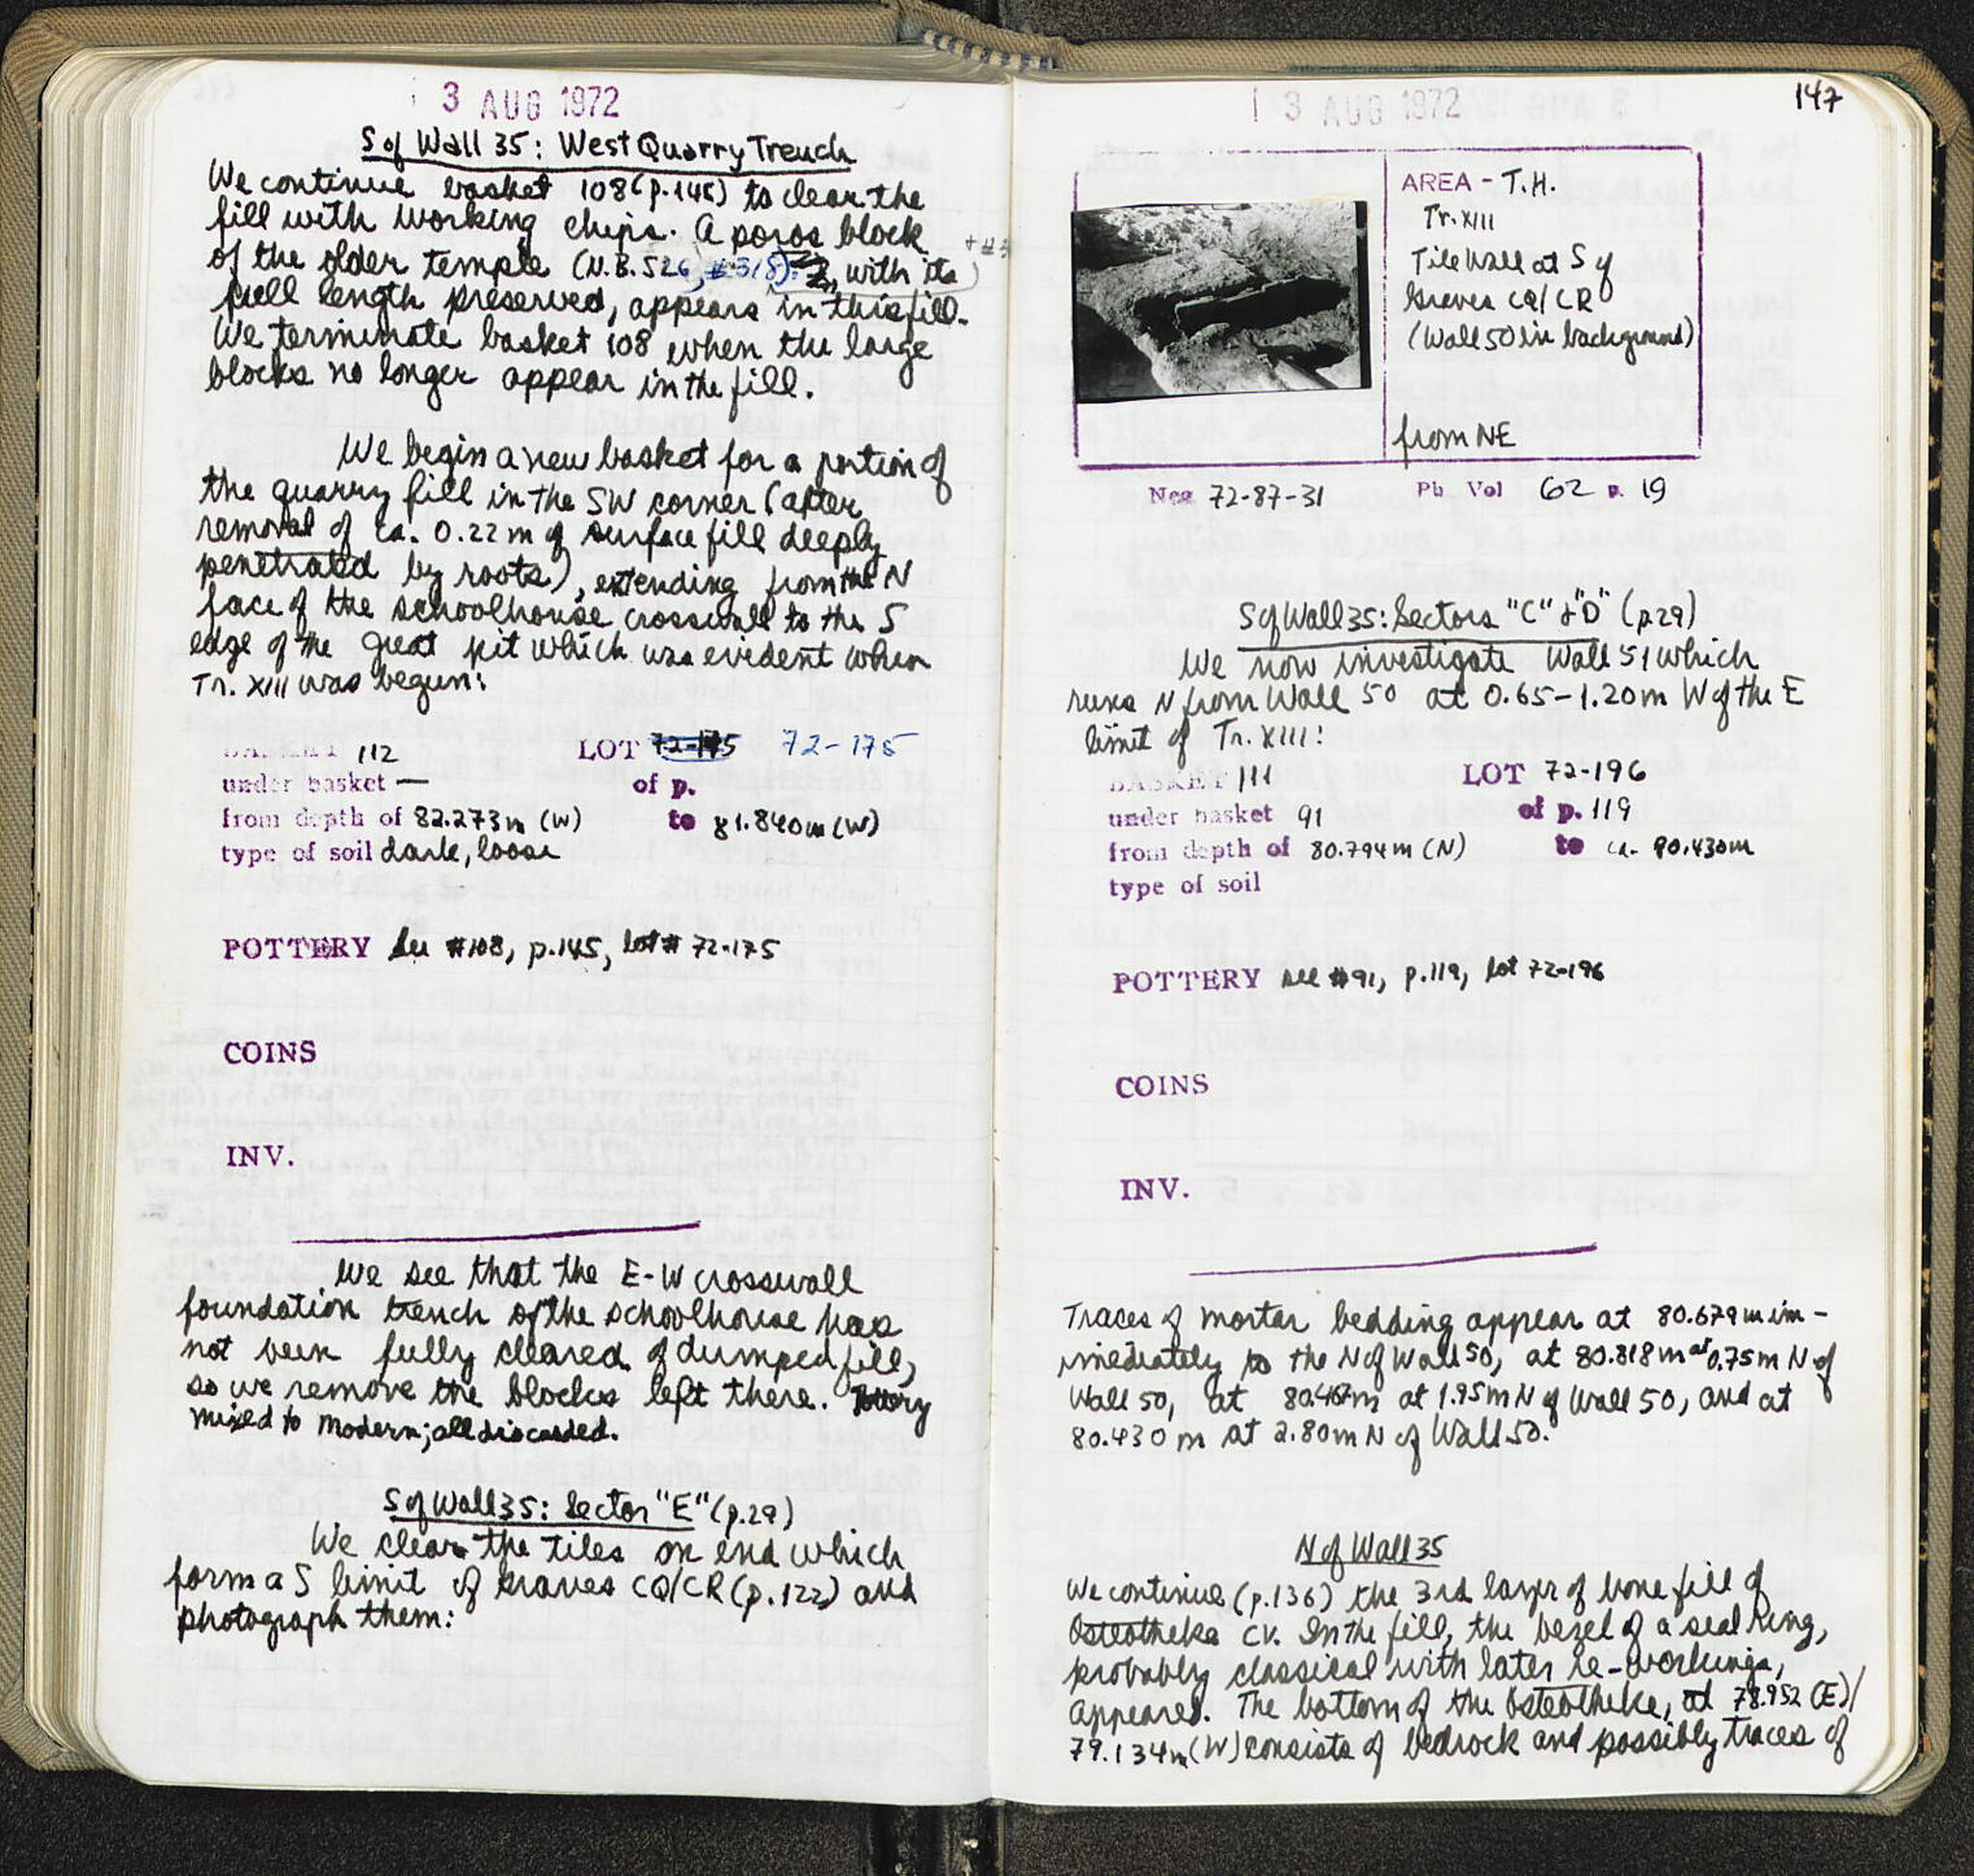 3 AUG 1972
S of Wall 35: West Quarry Trench
We continue basket 108 (p.145) to clear the
fill with working chips. A poros block
of the older temple (N.B. 526, #318), with its
full length preserved, appears in this fill.
We terminate basket 108 when the large
blocks no longer appear in the fill.
We begin a new basket for a portion of
the quarry fill in the SW corner (after
removal of ca. 0.22 m of surface fill deeply
penetrated by roots), extending from the N
face of the schoolhouse crosswall to the S
edge of the great pit which was evident when
Tr. XIII was begun:
BASKET 112 LOT 72-175 72-175
under basket — of p.
from depth of 82.273m (W) to 81.840m (W)
type of soil dark, loose
POTTERY See #108, p.145, lot # 72-175
COINS
INV.
We see that the E-W crosswall
foundation trench of the schoolhouse has
not been fully cleared of dumped fill,
so we remove the blocks left there. Pottery
mixed to Modern; all discarded.
S of Wall 35: Sector "E" (p.29)
We clean the tiles on end which
form a S limit of Graves CQ/CR (p.122) and
photograph them:
3 AUG 1972
147
AREA - T.H.
Tr. XIII
Tile Wall at S of
Graves CQ/CR
(Wall 50 in background)
from NE
Neg 72-87-31 Ph Vol 62 p. 19
S of Wall 35: Sectors "C" & "D" (p.29)
We now investigate Wall 51 which
runs N from Wall 50 at 0.65-1.20m W of the E
limit of Tr. XIII:
BASKET 111 LOT 72-196
under basket 91 of p. 119
from depth of 80.794m (N) to ca. 80.430m
type of soil
POTTERY see #91, p.119, lot 72-196
COINS
INV.
Traces of mortar bedding appear at 80.679m im-
mediately to the N of Wall 50, at 80.818m at 0.75m N of
Wall 50, at 80.467m at 1.95m N of Wall 50, and at
80.430 m at 2.80m N of Wall 50.
N of Wall 35
We continue (p.136) the 3rd layer of bone fill of
Osteotheke CV. In the fill, the bezel of a seal ring,
probably classical with later re-workings,
appeared. The bottom of the Osteotheke, at 78.952 (E)/
79.134m (W) consists of bedrock and possibly traces of